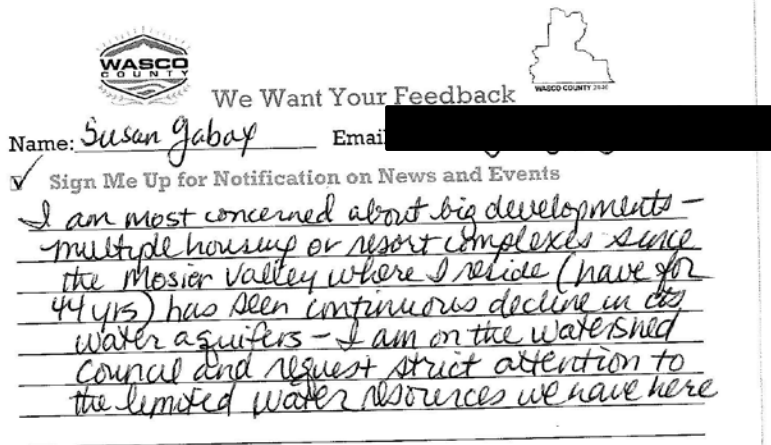 WASCO
COUNTY
WASCO COUNTY 2040
We Want Your Feedback
Name: Susan Gabay Email
Sign Me Up for Notification on News and Events
I am most concerned about big developments -
multiple housing or resort complexes since
the Mosier Valley where I reside (have for
44 yrs) has seen continuous decline in its
water aquifers - I am on the Watershed
Council and request strict attention to
the limited water resources we have here